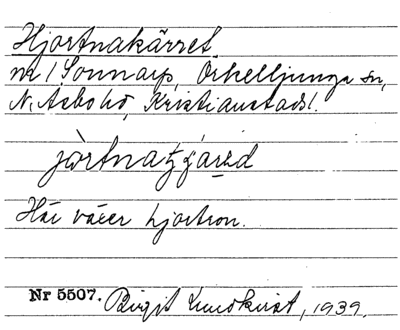 Hjortnakärret
nr 1 Sonnarp, Örkelljunga sn,
N. Åsbo hd, Kristianstads l.
Här växer hjortron.
Nr 5507. Birgit Lundkvist, 1939.